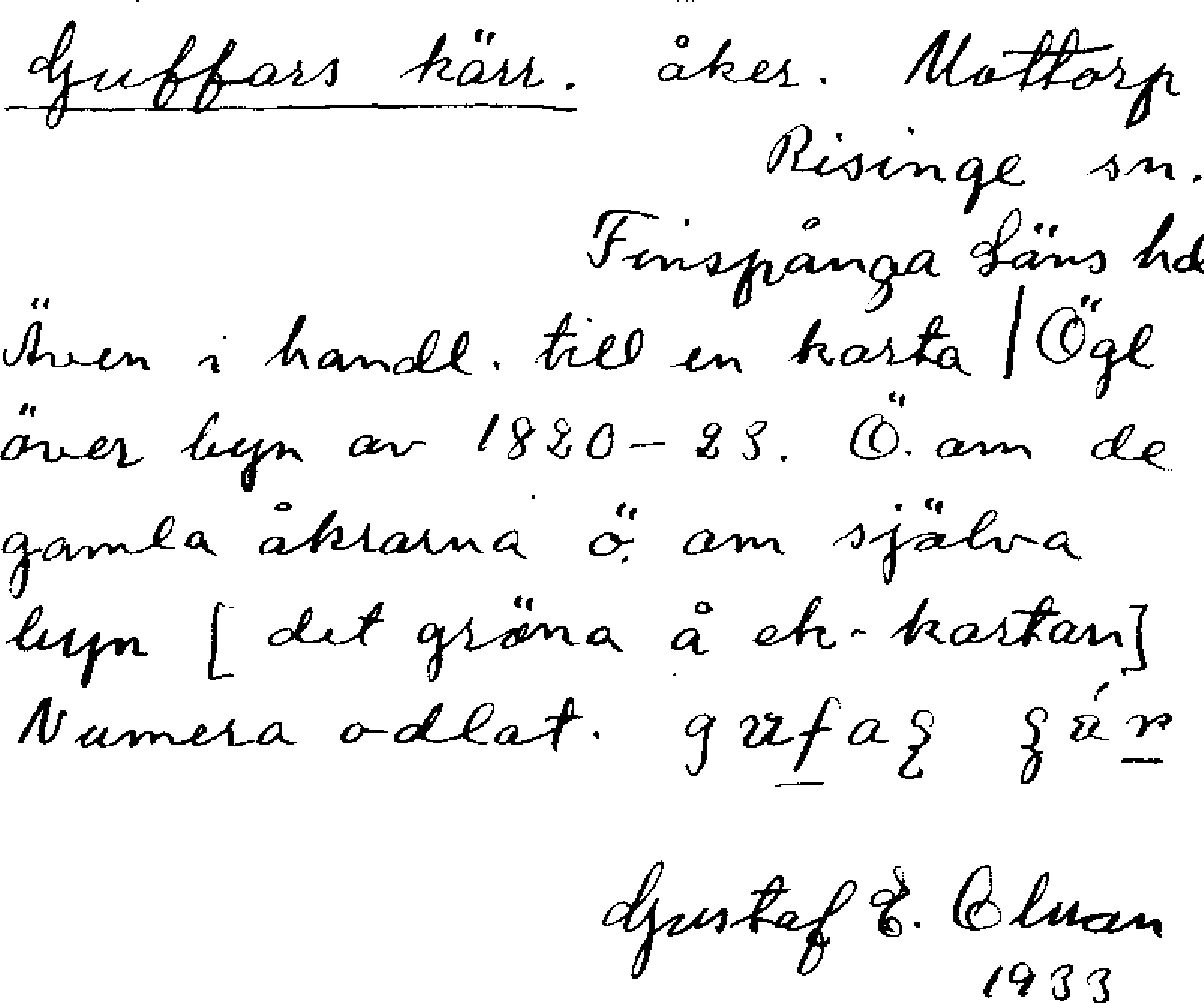 Guffars kärr. åker. Mottorp
Risinge sn.
Finspånga Läns hd
Även i handl. till en karta | Ögl
över byn av 1820-23. Ö. om de
gamla åkrarna ö. om själva
byn [det gröna å ek-kartan]
Numera odlat.
Gustaf E.
1933